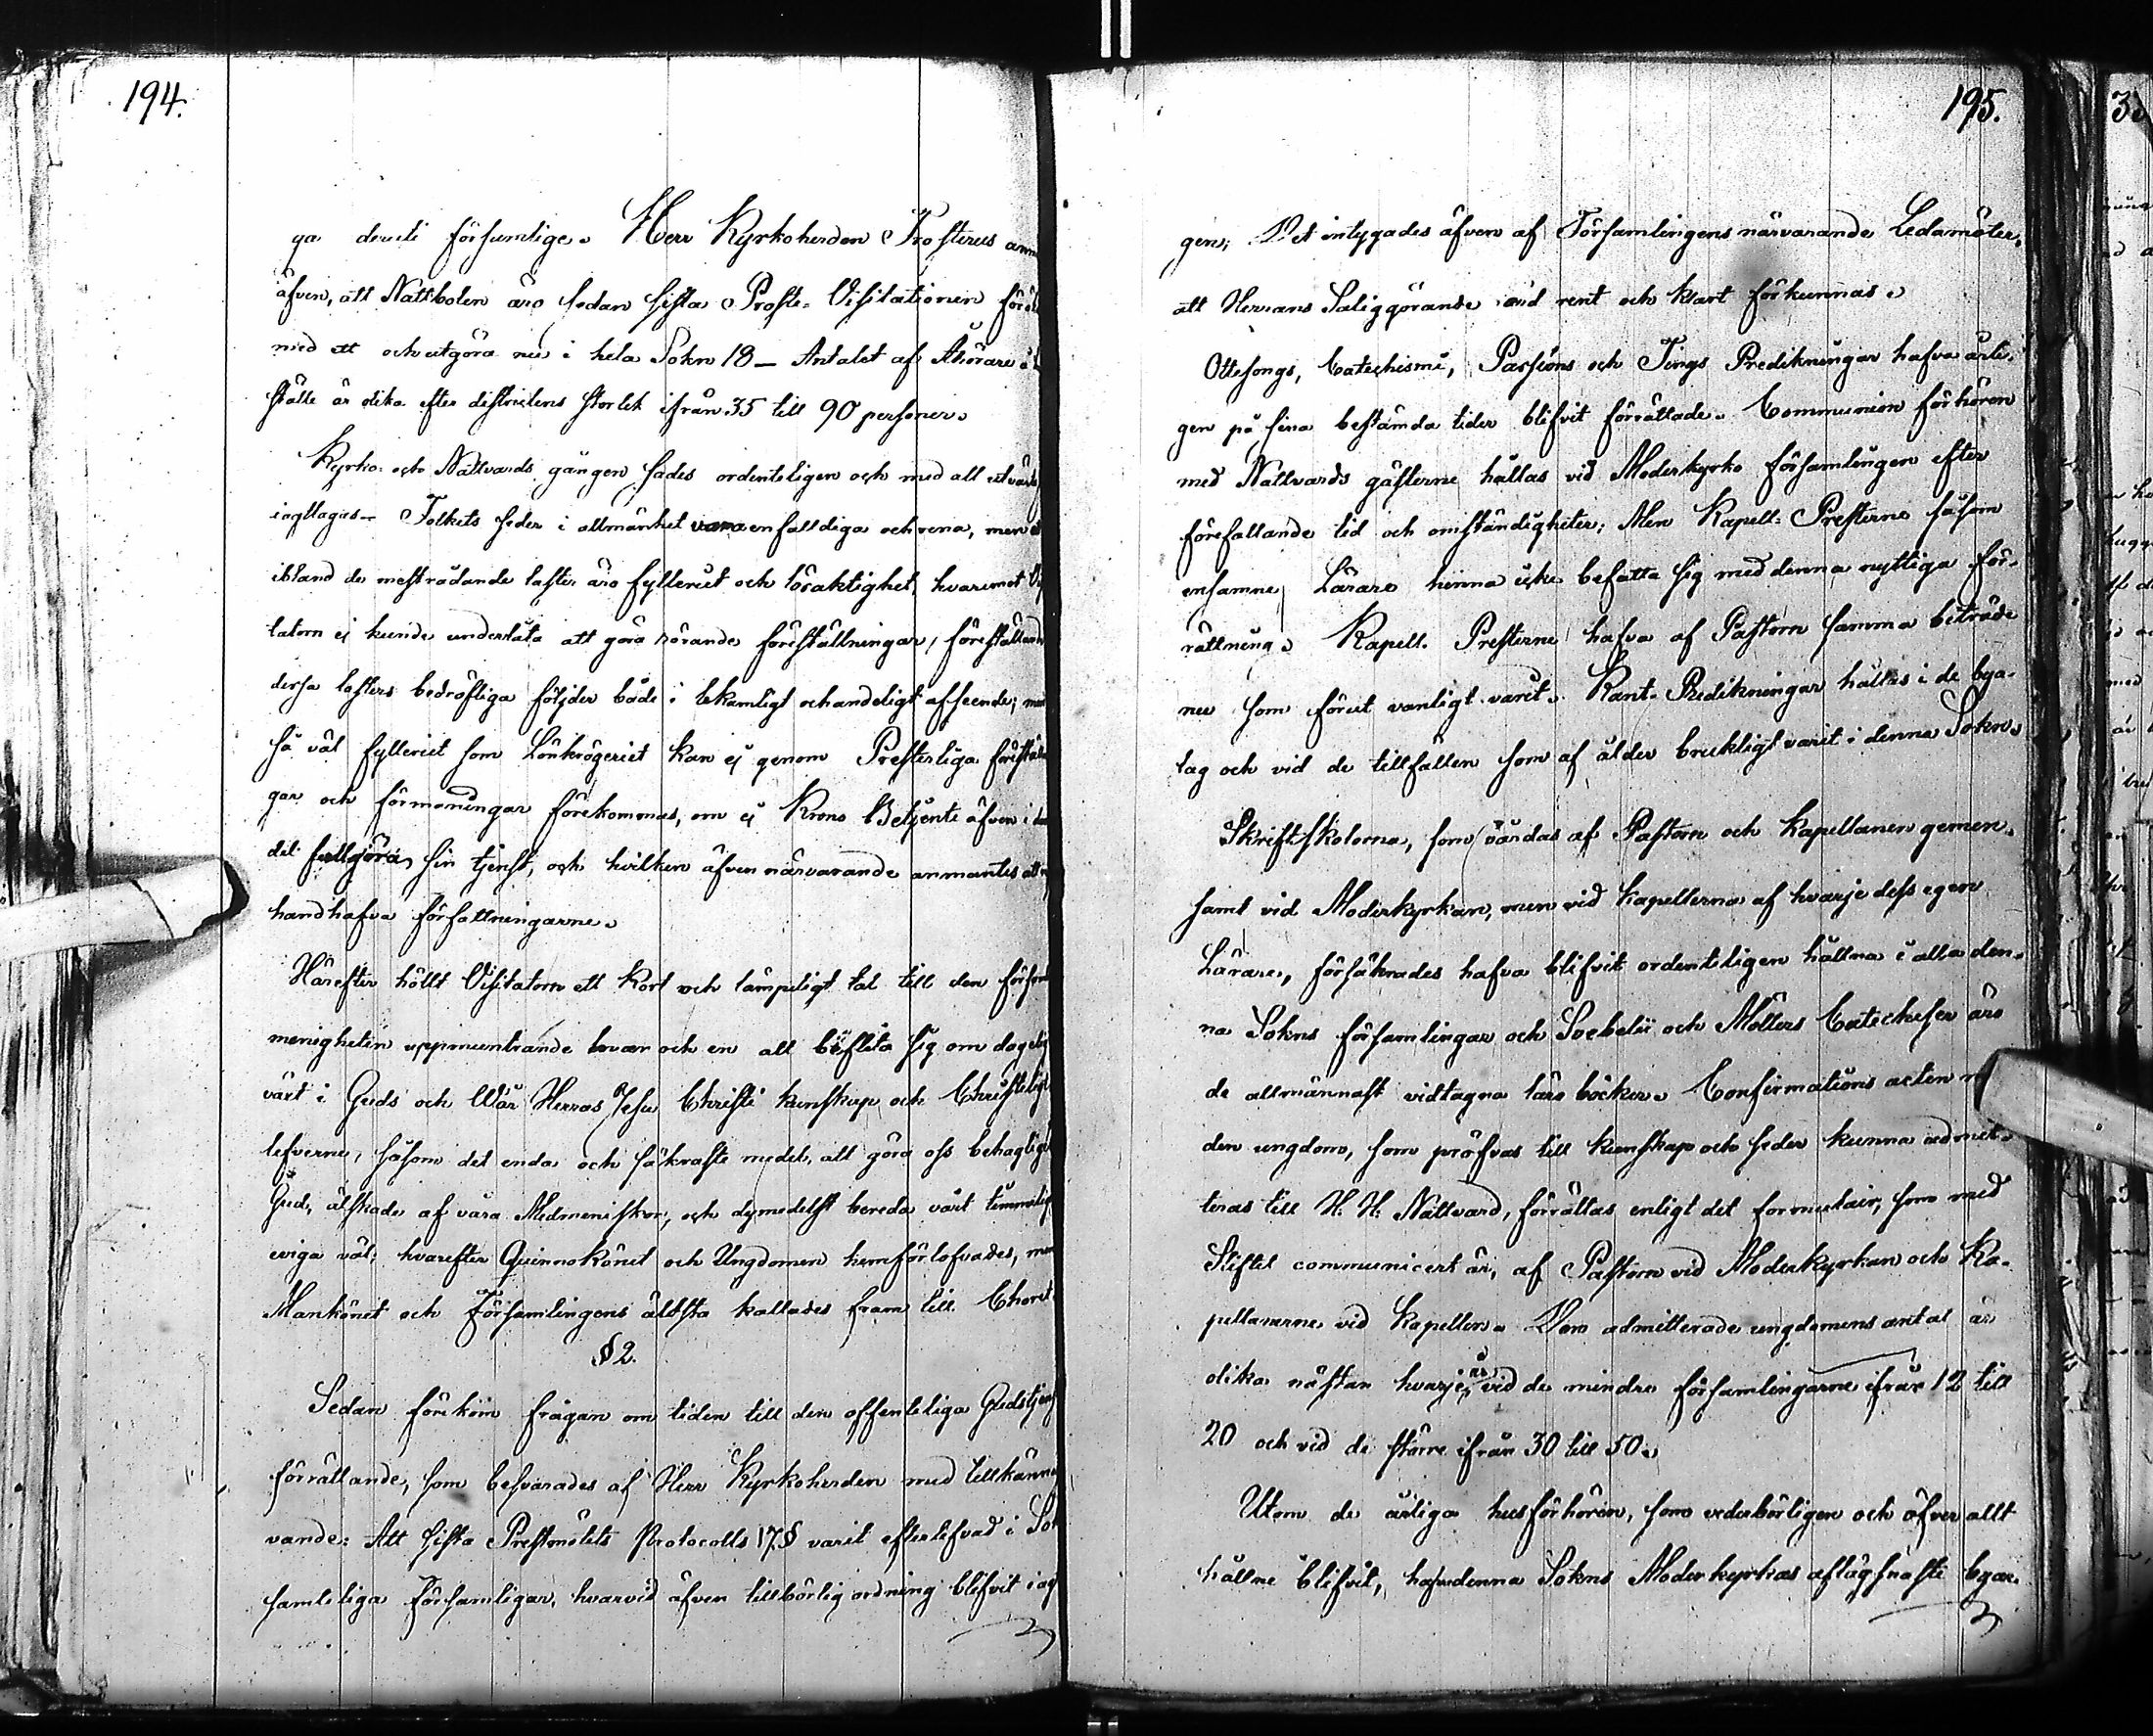 194.
ga deruti försumlige. Herr Kyrkoherden Frosterus anm
äfven, att Nattbolen äro sedan sista Proste-Visitationen förök
med ett och utgöra nu i hela Sokn 18 – Antalet af Åhörare å
ställe är olika efter districtens storlek ifrån 35 till 90 personer.
Kyrko- och Nattvards gången sades ordenteligen och med all utvärtes
iagttages – Folkets seder i allmänhet vara enfalldiga och rena, men
ibland de mest rådande laster äro fylleriet och lösaktighet, hvaremot Vi
tatorn ej kunde underlåta att göra rörande föreställningar, föreställand
dessa lasters bedröfliga följder både i lekamligt och andeligt afseende; men
så väl fylleriet som Lönkrögeriet kan ej genom Presterliga förställn
gar och förmaningar förekommas, om ej Krono Betjente äfven i
del fullgöra sin tjenst, och hvilken äfven närvarande anmantes att
handhafva författningarne.
Härefter höllt Visitatorn ett kort och lämpeligt tal till den försam
menigheten uppmuntrande hvar och en att beflita sig om daglig
växt i Guds och Wår Herras Jesu Christi kunskap och Christeligt
lefverne, såsom det enda och säkraste medel, att göra oss behagliga
Gud, älskade af våra Medmeniskor, och dymedelst bereda vårt timmeliga
eviga väl; hvarefter Quinnokönet och Ungdomen hemförlofvades, men
Mankönet och Församlingens äldsta kallades fram till Choret.
§ 2.
Sedan förekom frågan om tiden till den offenteliga Gudstjens
förrättande, som besvarades af Herr Kyrkoherden med tillkänna
vande: Att sista Prestmötets Protocolls 17 § varit efterlefvad i Sok
samteliga Församligar, hvarvid äfven tillbörlig ordning blifvit iag
195.
gen; Det intygades äfven af Församlingens närvarande Ledamöter,
att Herrans Saliggörande ord rent och klart förkunnas.
Ottesongs, Catechismi, Passions och Tings Predikningar hafva ärli-
gen på sina bestämda tider blifvit förrättade. Communion förhören
med Nattvards gästerne hållas vid Moderkyrko församlingen efter
förefallande tid och omständigheter; Men Kapell-Presterne såsom
ensamne Lärare hinna icke befatta sig med denna nyttiga för-
rättning. Kapell-Presterne hafva af Pastorn samma beträde
nu som förut vanligt varit. Kant-Predikningar hålles i de bya-
lag och vid de tillfällen som af ålder brukligt varit i denna Sokn.
Skriftskolorna, som vårdas af Pastorn och Kapellanen gemen-
samt vid Moderkyrkan, men vid kapellerna af hvarje dess egen
Lärare, försäkrades hafva blifvit ordenteligen hållna i alla den-
na Sokns församlingar och Svebelii och Möllers Catecheser äro
de allmännast vidtagna läro böcker. Confirmations acten m
den ungdom, som pröfvas till kunskap och seder kunna admit-
teras till H. H. Nattvard, förrättas enligt det formulair, som med
Stiftet communicert är, af Pastorn vid Moderkyrkan och Ka-
pellanerne vid kapellen. Den admitterade ungdomens antal är
olika nästan hvarje år, vid de mindre församlingarne ifrån 12 till
20 och vid de större ifrån 30 till 50.
Utom de årliga husförhören, som vederbörligen och öfver allt
hållne blifvit, hafva denna Sokns Moderkyrkas aflägsnaste byar